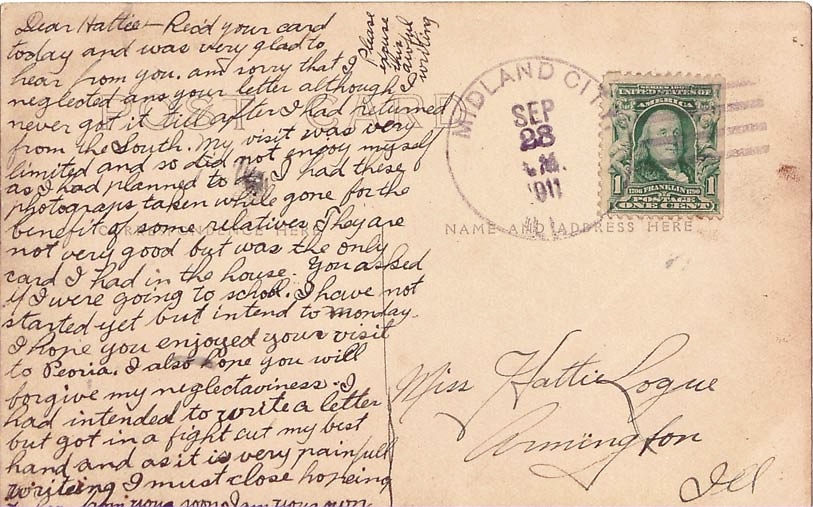 Dear Hattie - Rec'd your card
today and was very glad to
hear from you. am sorry that I
neglected ans your letter although I
never got it till after I had returned
from the South. My visit was very
limited and so did not enjoy myself
as I had planned to do. I had these
photograps taken while gone for the
benefit of some relatives They are
not very good but was the only
card I had in the house. You asked
if I were going to school. I have not
started yet but intend to monday.
I hope you enjoyed your visit
to Peoria. I also hope you will
forgive my neglectaviness. I
had intended to write a letter
but got in a fight cut my best
hand and as it is very painfull
writeing I must close hopeing
from you soon I am your own
Please
excuse
this
awful
writing
POST CARD
CORRESPONDENCE HERE
NAME AND ADDRESS HERE
MIDLAND CITY
SEP
28
1911
ILL.
SERIES 1902
UNITED STATES OF
AMERICA
1706 FRANKLIN 1790
1 POSTAGE 1
ONE CENT
Miss Hattie Logue
Armington
Ill